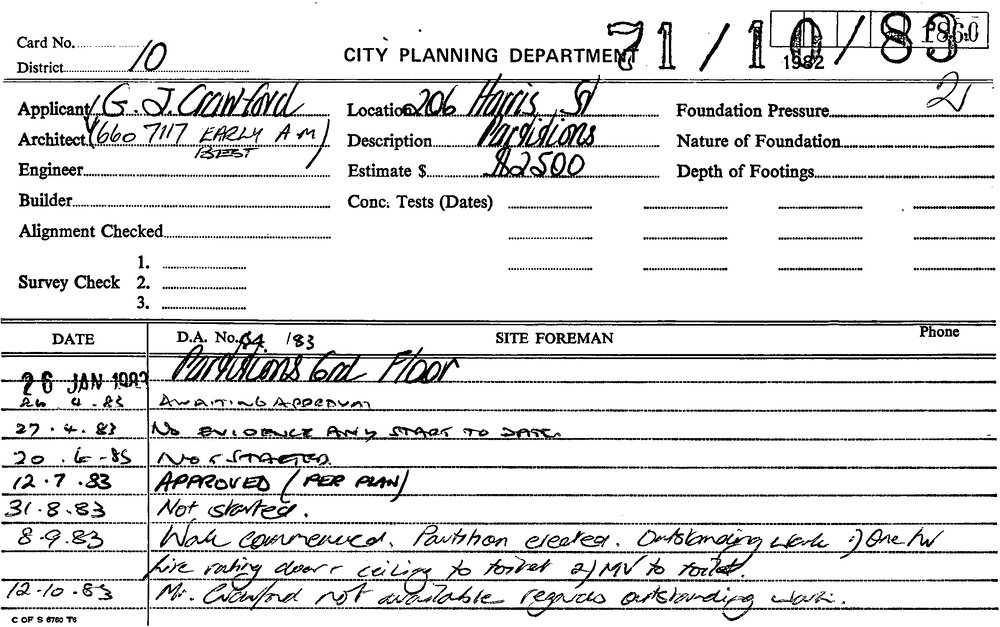 Card No. 10 CITY PLANNING DEPARTMENT 71/10/83 1982 1860
District
Applicant G. J. Crawford Location 206 Harris St Foundation Pressure 2
Architect (660 7117 EARLY A.M) Description Partitions Nature of Foundation
BEST
Engineer Estimate $ $2500 Depth of Footings
Builder Conc. Tests (Dates)
Alignment Checked
1.
Survey Check 2.
3.
DATE D.A. No. 84 /83 SITE FOREMAN Phone
26 JAN 1983 Partitions Floor
26.4.83 AWAITING APPROVAL
27.4.83 NO EVIDENCE ANY START TO DATE.
20.6-83 NOT STARTED
12.7.83 APPROVED (PER PLAN)
31.8.83 Not started.
8.9.83 Work commenced. Partition erected. Outstanding work 1) One hr
fire rating door & ceiling to toilet 2) MV to toilet.
12.10.83 Mr. Crawford not available regards outstanding work.
C OF S 6760 T6